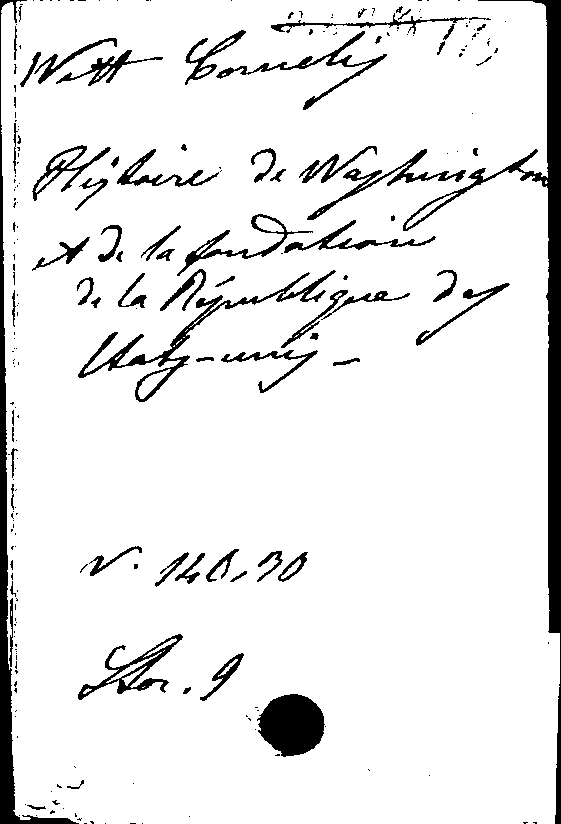 Witt Cornelis
Histoire de Washington
et de la fondation
de la République des
Etats-unis -
V. 140,30
Stor. 9